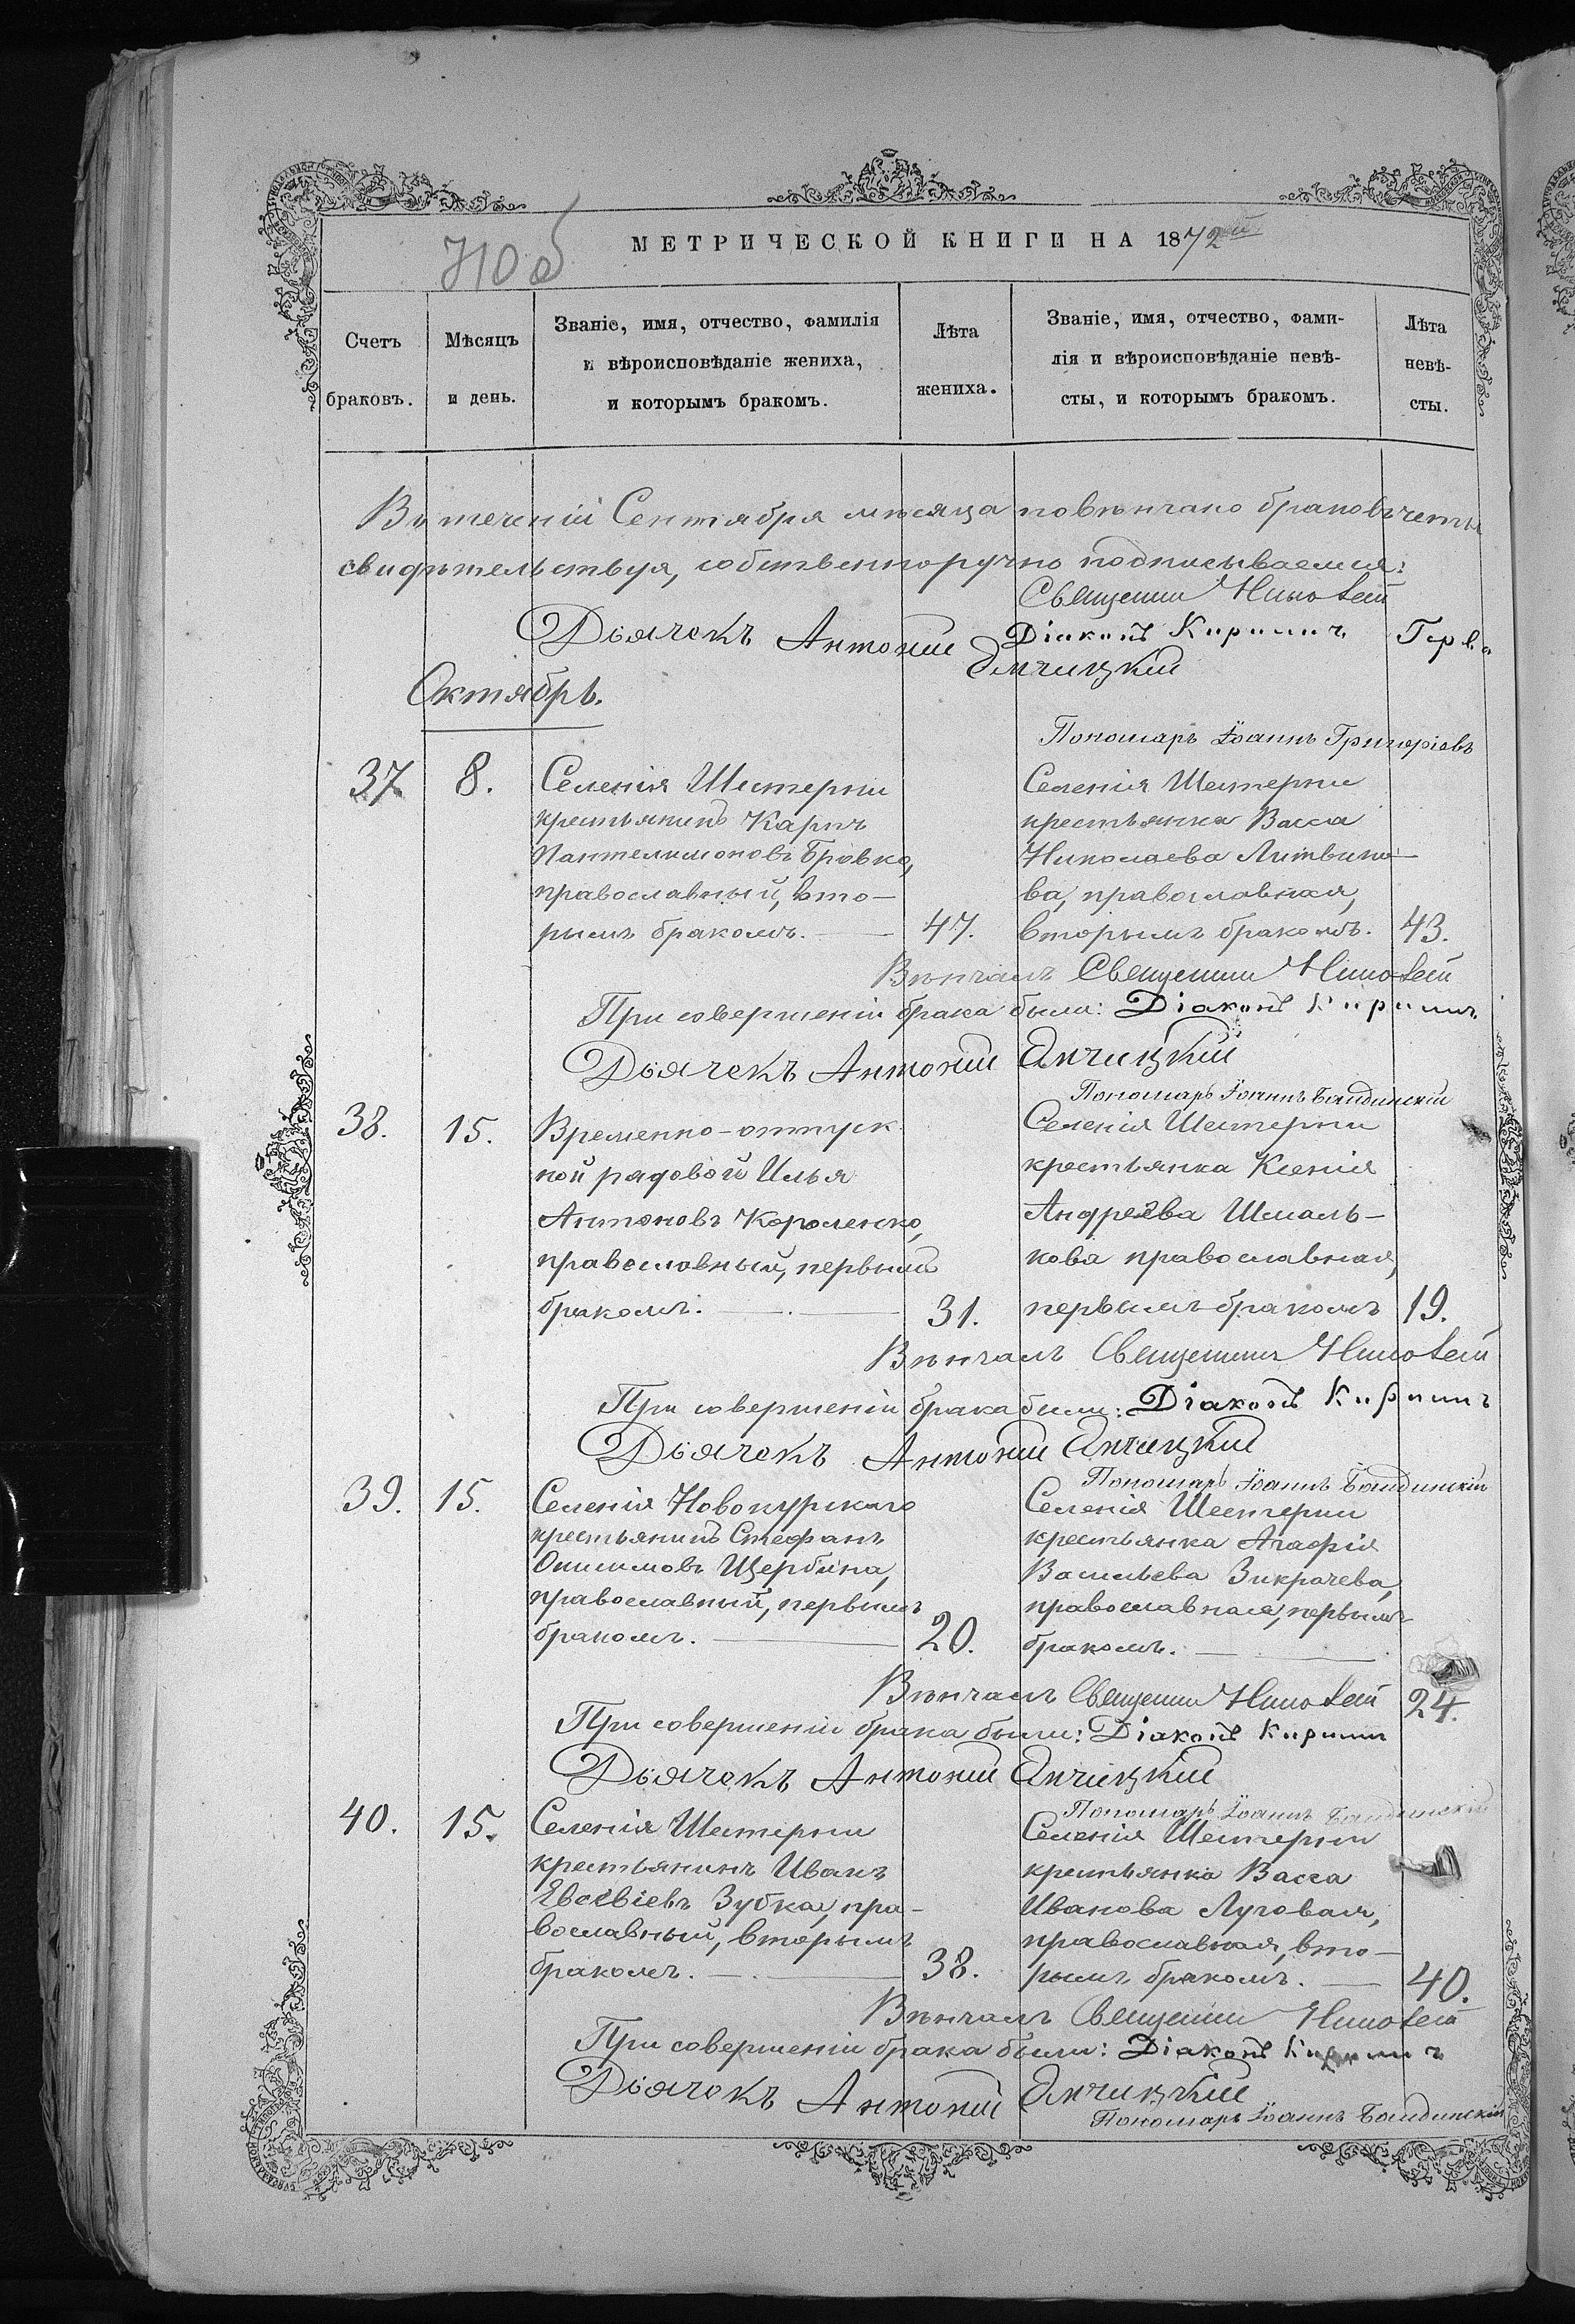 710 об
МЕТРИЧЕСКОЙ КНИГИ НА 1872ой
Счетъ браковъ.
Мѣсяцъ и день.
Званіе, имя, отчество, фамилія
и вѣроисповѣданіе жениха,
и которымъ бракомъ.
Лѣта
жениха.
Званіе, имя, отчество, фами-
лія и вѣроисповѣданіе невѣ-
сты, и которымъ бракомъ.
Лѣта
невѣ-
сты.
Въ теченіи Сентября мѣсяца повѣнчано браковъ четы
свидѣтельствуя, собственноручно подписываемся:
Священник
Діаконъ Кирилъ
Дьячекъ Антоній
Октябрь.
Пономарь Іоаннъ Григоріевъ
37
8.
Селенія Шестерни
крестьянинъ Карпъ
Пантелимоновъ Бровко,
православный, вто-
рымъ бракомъ.
47.
Селенія Шестерни
крестьянка Васса
Николаева Литвино-
ва, православная,
вторымъ бракомъ.
43.
Вѣнчалъ Священник
При совершеніи брака были: Діаконъ Кирилъ
Дьячекъ Антоній Янчицкій
Пономарь Іоаннъ Бандинскій
38.
15.
Временно-отпуск
ной рядовой Илья
Антоновъ Короленко,
православный, первымъ
бракомъ.
31.
Селенія Шестерни
крестьянка Ксенія
Андреева Шмаль-
кова православная,
первымъ бракомъ
19.
Вѣнчалъ Священник
При совершеніи брака были: Діаконъ Кирилъ
Дьячекъ Антоній Янчицкій
Пономарь Іоаннъ Бандинскій
39.
15.
Селенія Новокурскаго
крестьянинъ Стефанъ
Онисимовъ Щербина,
православный, первымъ
бракомъ.
20.
Селенія Шестерни
крестьянка Агафія
Васильева Зикрачева,
православная, первымъ
бракомъ.
24.
Вѣнчалъ Священник
При совершеніи брака были: Діаконъ Кирилъ
Дьячекъ Антоній Янчицкій
Пономарь Іоаннъ Бандинскій
40.
15.
Селенія Шестерни
крестьянинъ Иванъ
Евсѣвіевъ Зубка, пра-
вославный, вторымъ
бракомъ.
38.
Селенія Шестерни
крестьянка Васса
Иванова Луговая,
православная, вто-
рымъ бракомъ.
40.
Вѣнчалъ Священник
При совершеніи брака были: Діаконъ Кирилъ
Дьячокъ Антоній Янчицкій
Пономарь Іоаннъ Бандинскій